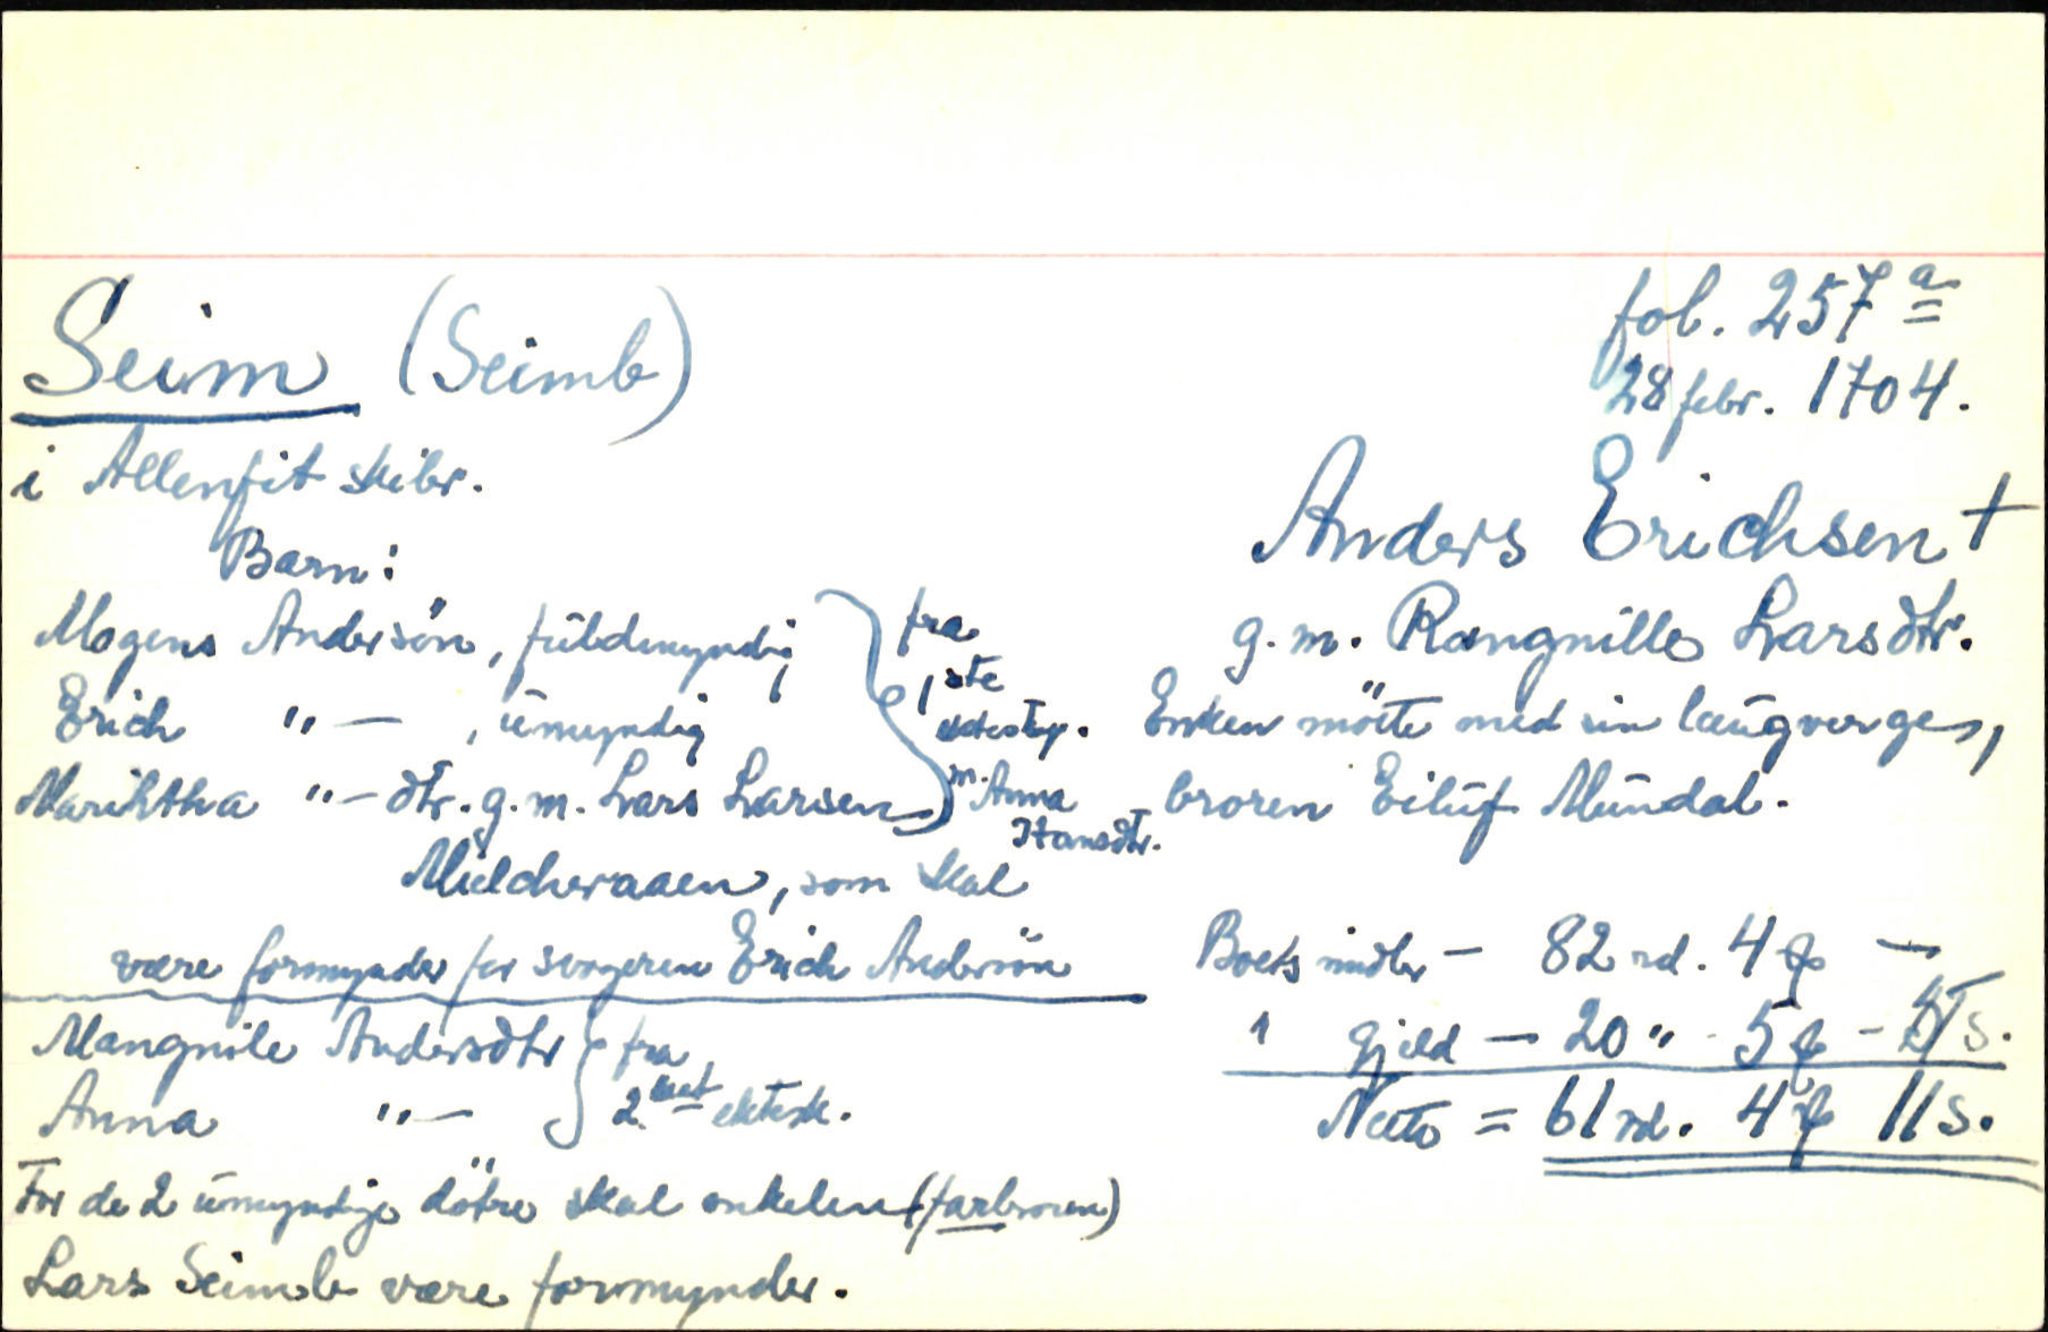 Seim (Seimb)
fol. 257 a
28 febr. 1704.
i Allenfit skibr.
Anders Erichsen +
g. m. Rangnille Larsdtr.
Enken mötte med sin laugverge,
broren Eiluf Mundal.
Barn:
Mogens Andersön, fuldmyndig
Erich " — , umyndig
Marihtha " — dtr. g. m. Lars Larsen
Mielcheraaen, som skal
være formynder for svogeren Erich Andersön
fra
1ste
ektesk.
m. Anna
Hansdtr.
Mangnile Andersdtr
Anna " —
fra
2det ektesk.
For de 2 umyndige döttre skal onkelen (farbroren)
Lars Seimb være formynder.
Boets midler — 82 rd. 4 —
1 Gjeld — 20 " - 5 - s.
Netto = 61 rd. 4 11 s.